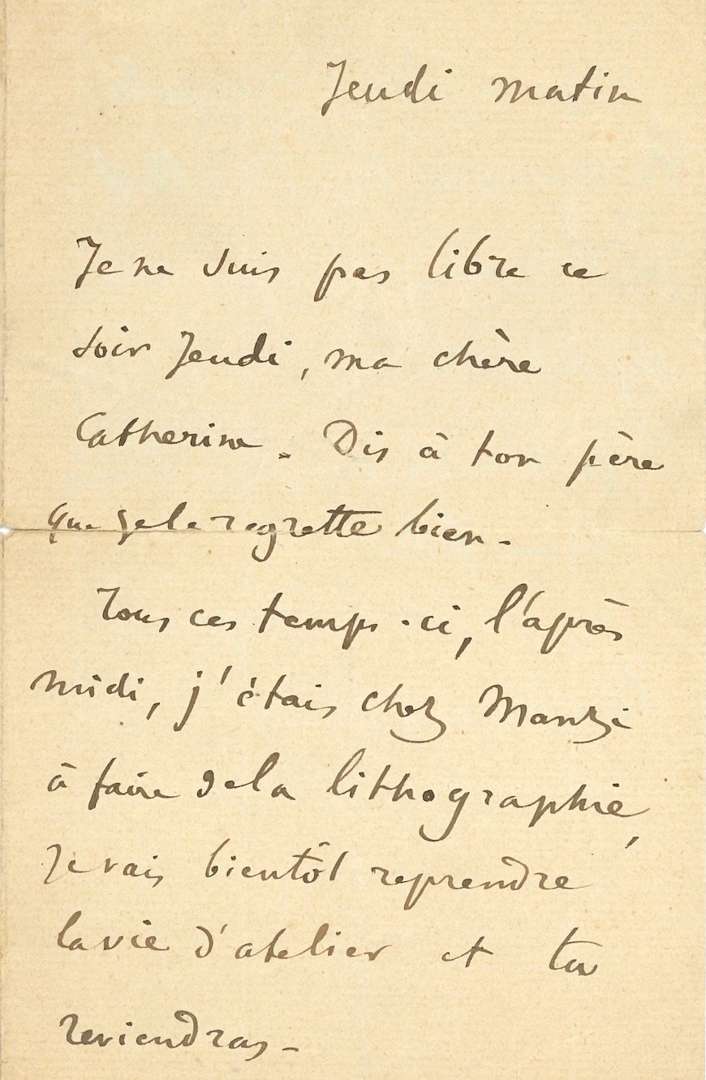 Jeudi matin
Je ne suis pas libre ce
soir Jeudi, ma chère
Catherine. Dis à ton père
que je le regrette bien.
Tous ces temps-ci, l'après
midi, j'étais chez Manzi
à faire de la lithographie,
je vais bientôt reprendre
la vie d'atelier et tu
reviendras.